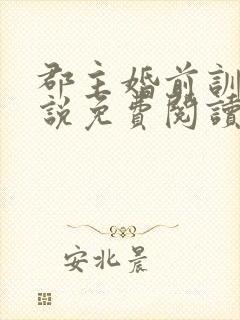 郡主婚前訓
說免費閱讀
安北晨